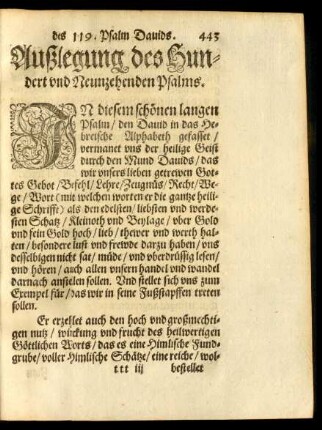 des 119. Psalm Dauids. 443
Außlegung des Hun-
dert vnd Neunzehenden Psalms.
IN diesem schönen langen
Psalm / den Dauid in das He-
breische Alphabeth gefasset /
vermanet vns der heilige Geist
durch den Mund Dauids / das
wir vnsers lieben getrewen Got-
tes Gebot / Befehl / Lehre / Zeugnüs / Recht / We-
ge / Wort (mit welchen worten er die gantze heili-
ge Schrifft) als den edelsten / liebsten vnd werde-
sten Schatz / Kleinoth vnd Beylage / vber Gold
vnd fein Gold hoch / lieb / thewer vnd werth hal-
ten / besondere lust vnd frewde darzu haben / vns
desselbigen nicht sat / müde / vnd vberdrüssig lesen /
vnd hören / auch allen vnsern handel vnd wandel
darnach anstelen sollen. Vnd stellet sich vns zum
Exempel für / das wir in seine Fußstapffen treten
sollen.
Er erzelet auch den hoch vnd großmechti-
gen nutz / wirckung vnd frucht des heilwertigen
Göttlichen Worts / das es eine Himlische Fund-
grube / voller Himlische Schätze / eine reiche / wol-
ttt iij bestellet